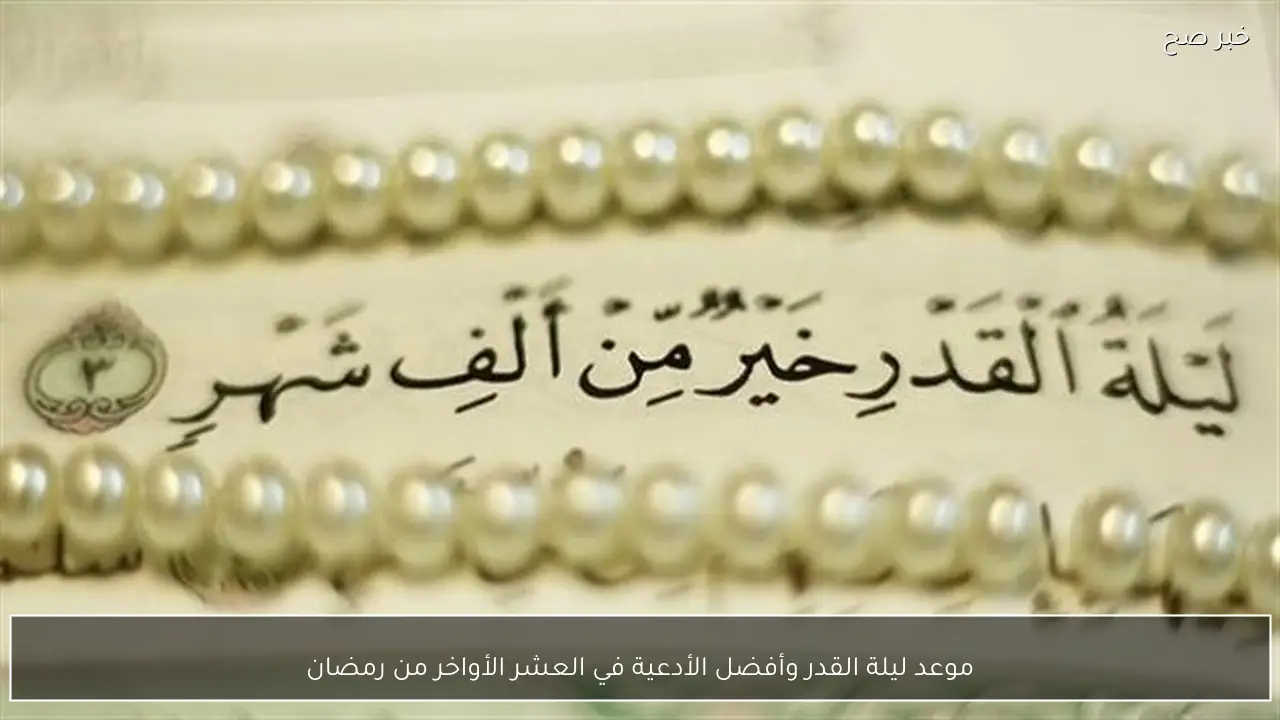 خبر صح
لَيْلَةُ ٱلْقَدْرِ خَيْرٌ مِّنْ أَلْفِ شَهْرٍ ٣
موعد ليلة القدر وأفضل الأدعية في العشر الأواخر من رمضان